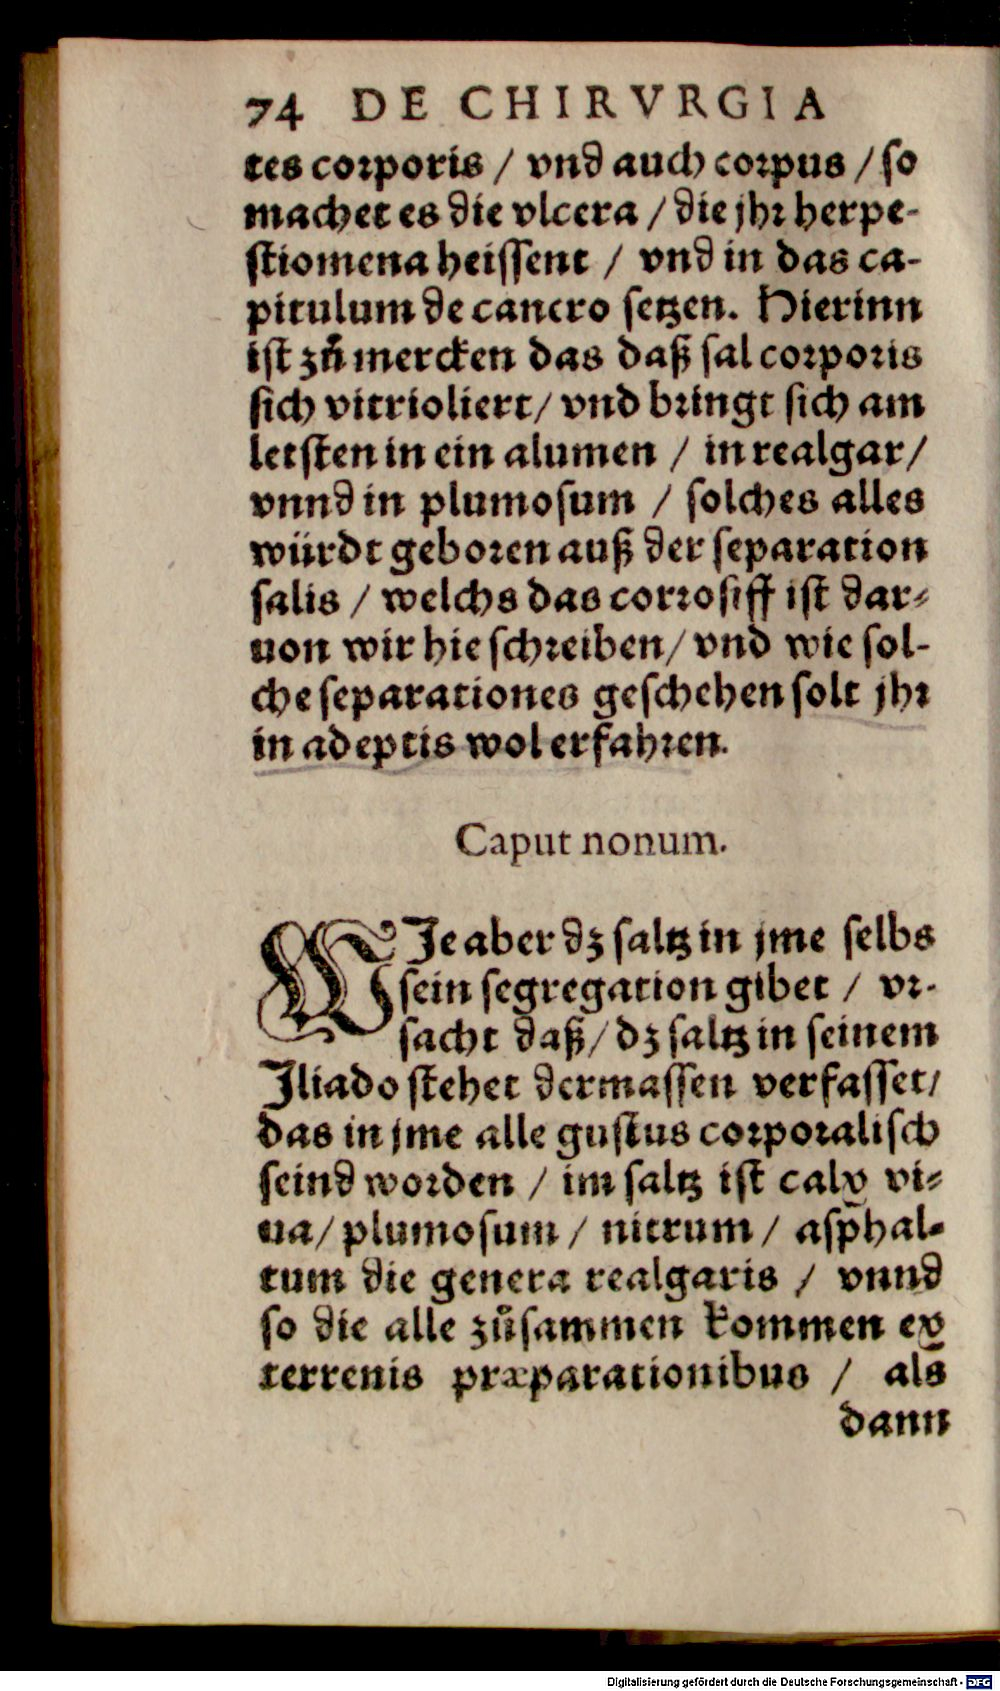 74 DE CHIRVRGIA
tes corporis / vnd auch corpus / so
machet es die vlcera / die jhr herpe-
stiomena heissent / vnd in das ca-
pitulum de cancro setzen. Hierinn
ist zů mercken das daß sal corporis
sich vitrioliert/ vnd bringt sich am
letsten in ein alumen / in realgar/
vnnd in plumosum / solches alles
würdt geboren auß der separation
salis / welchs das corrosiff ist dar-
uon wir hie schreiben/ vnd wie sol-
che separationes geschehen solt jhr
in adeptis wol erfahren.
Caput nonum.
WJe aber dz saltz in jme selbs
sein segregation gibet / vr-
sacht daß/ dz saltz in seinem
Jliado stehet dermassen verfasset/
das in jme alle gustus corporalisch
seind worden / im saltz ist calx vi-
ua/ plumosum / nitrum / asphal-
tum die genera realgaris / vnnd
so die alle zůsammen kommen ex
terrenis præparationibus / als
dann
Digitalisierung gefördert durch die Deutsche Forschungsgemeinschaft - DFG